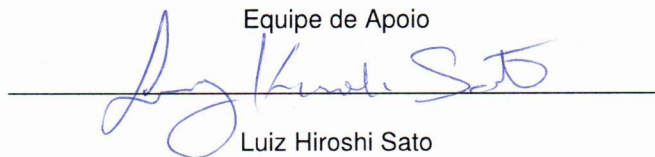 Equipe de Apoio
Luiz Hiroshi Sato
Luiz Hiroshi Sato